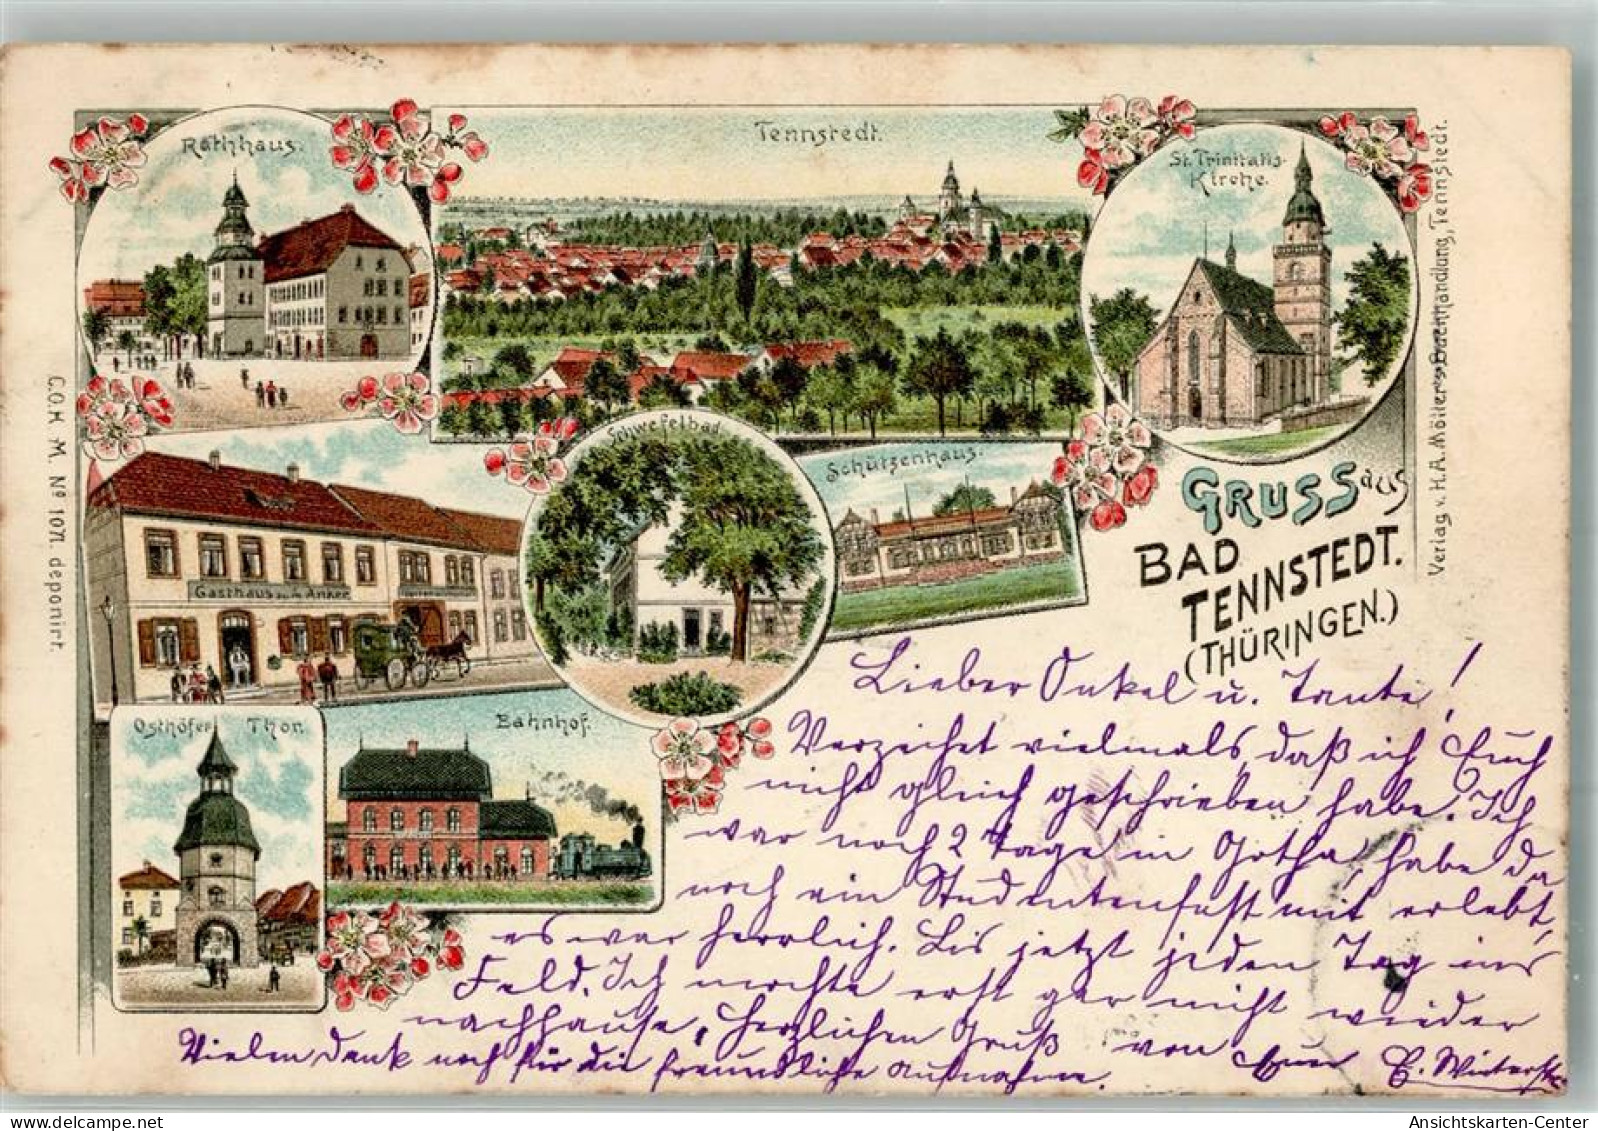 Rathhaus.
Tennstedt.
St. Trinitatis-
Kirche.
Schwefelbad
Schützenhaus.
Gasthaus zum Anker
Osthöfer Thor.
Bahnhof.
GRUSS aus
BAD
TENNSTEDT.
(THÜRINGEN.)
C.O.K. M. No 1071. deponirt.
Verlag v. H.A. Möller's Buchhandlung, Tennstedt.
Lieber Onkel u. Tante!
Verzeihet vielmals, daß ich Euch
nicht gleich geschrieben habe. Ich
war noch 2 Tage in Gotha, habe da
noch ein Studentenfest mit erlebt,
es war herrlich. Bis jetzt jeden Tag ins
Feld. Ich mochte erst gar nicht wieder
nachhause. Herzlichen Gruß von Euer E.
Vielen Dank noch für die freundliche Aufnahme.
Ansichtskarten-Center